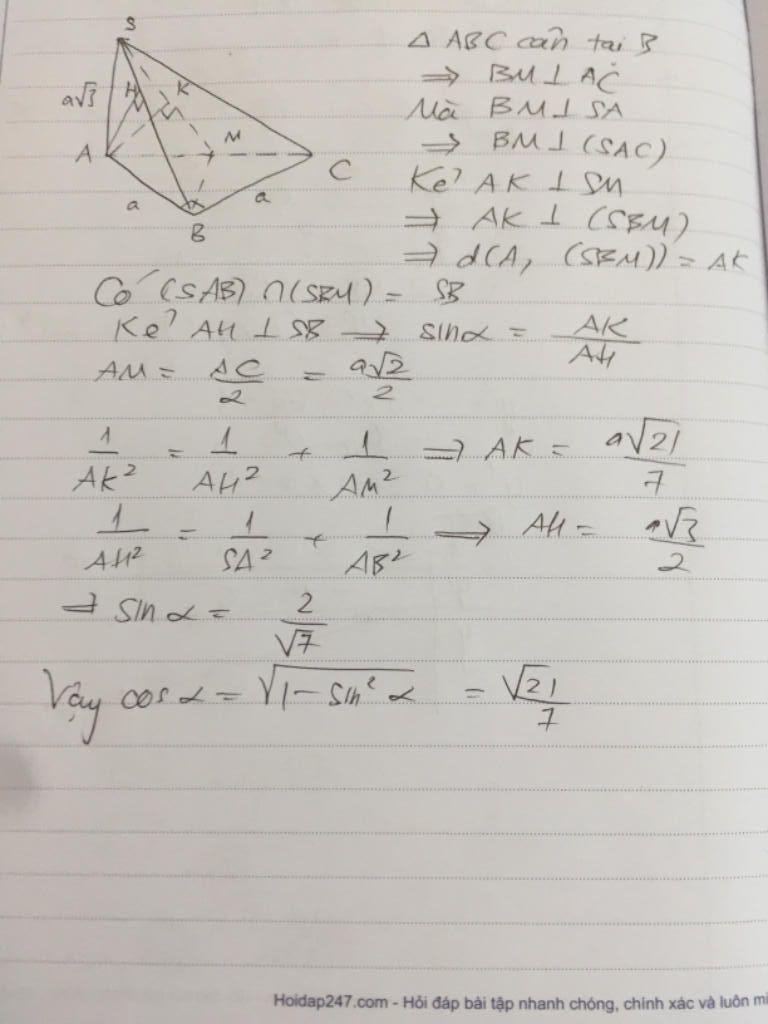 S
a√3
H
K
A
M
C
a
a
α
B
Δ ABC cân tại B
⇒ BM ⊥ AC
Mà BM ⊥ SA
⇒ BM ⊥ (SAC)
Kẻ AK ⊥ SM
⇒ AK ⊥ (SBM)
⇒ d(A, (SBM)) = AK
Có (SAB) ∩ (SBM) = SB
Kẻ AH ⊥ SB ⇒ sin α = AK/AH
AM = AC/2 = a√2/2
1/AK² = 1/AH² + 1/AM² ⇒ AK = a√21/7
1/AH² = 1/SA² + 1/AB² ⇒ AH = a√3/2
⇒ sin α = 2/√7
Vậy cos α = √(1 - sin² α) = √21/7
Hoidap247.com - Hỏi đáp bài tập nhanh chóng, chính xác và luôn mi